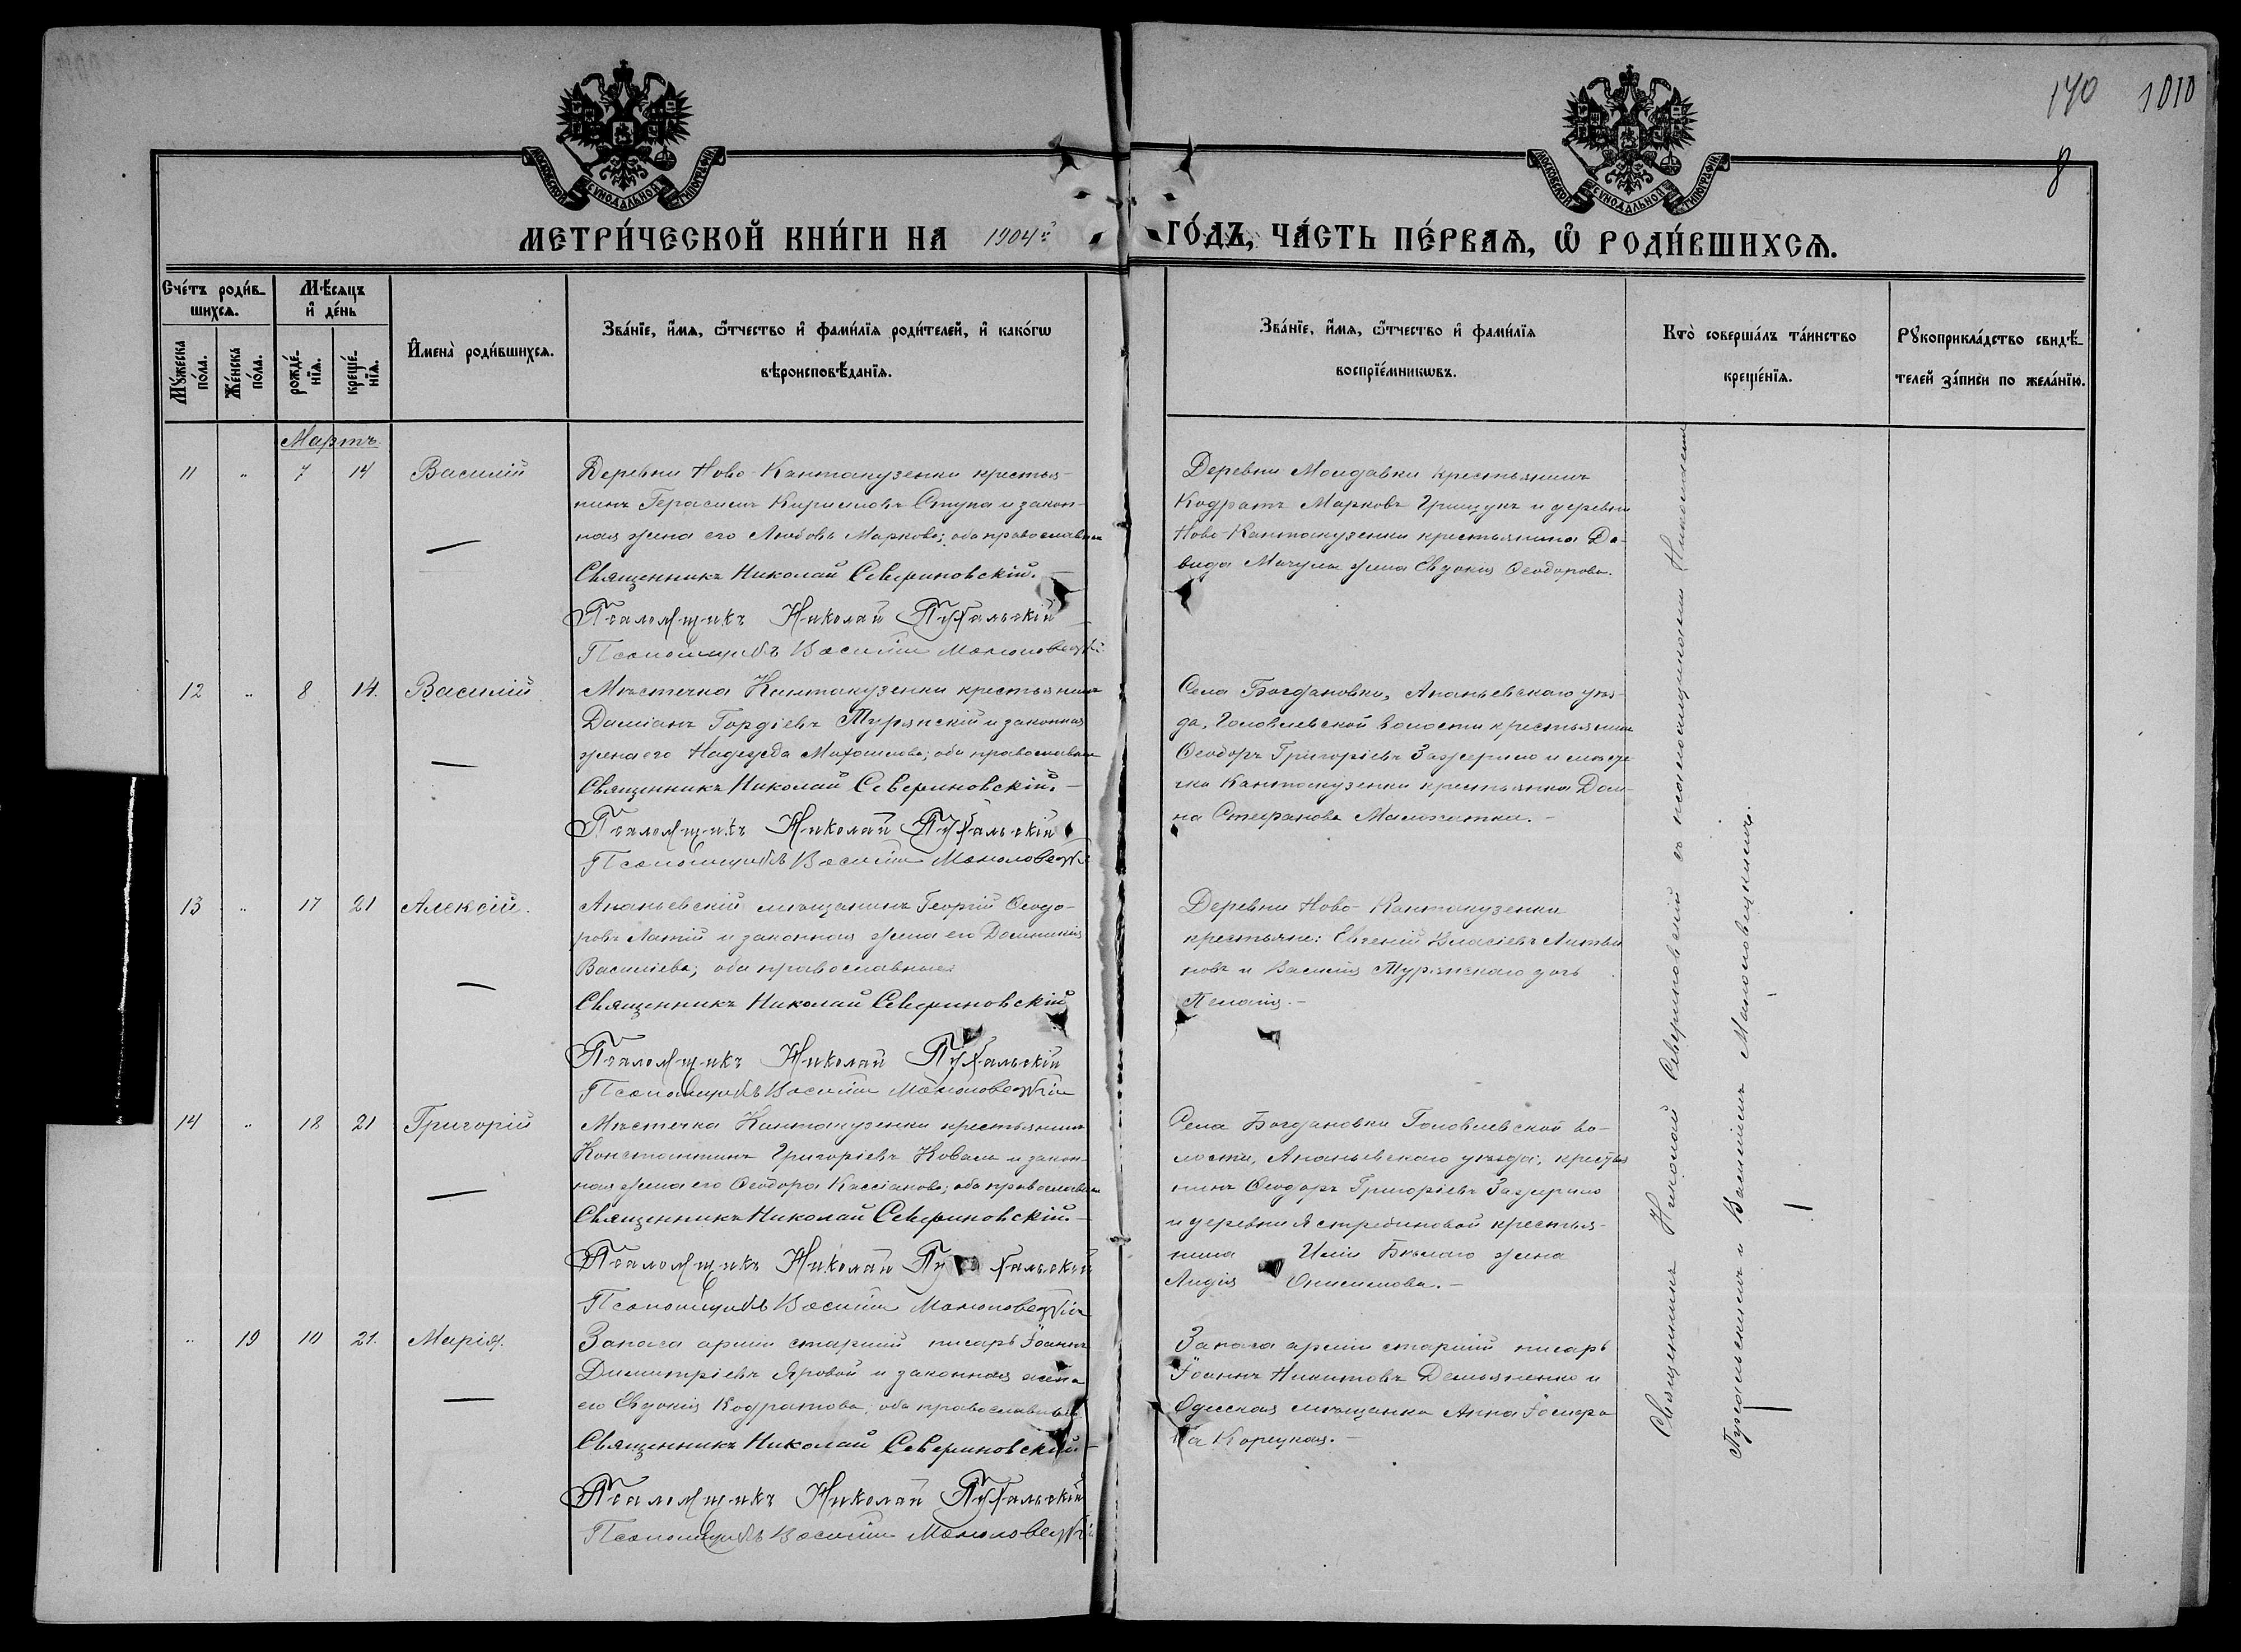 170 1010
8
МОСКОВСКОЙ СѴНОДАЛЬНОЙ ТИПОГРАФІИ
МОСКОВСКОЙ СѴНОДАЛЬНОЙ ТИПОГРАФІИ
МЕТРИ́ЧЕСКОЙ КНИ́ГИ НА 1904й ГО́ДЪ, ЧА́СТЬ ПЕ́РВАѦ, Ѡ҆ РОДИ́ВШИХСѦ.
Сче́тъ роди́в-
шихсѧ.
Мꙋ́жеска по́ла.
Же́нска по́ла.
Мѣ́сѧцъ
и҆ де́нь
рожде́-нїѧ.
креще́-нїѧ.
И҆мена̀ роди́вшихсѧ.
Зва́нїе, и҆́мѧ, ѻ҆́тчество и҆ фами́лїѧ роди́телей, и҆ како́гѡ
вѣроисповѣ́данїѧ.
Зва́нїе, и҆́мѧ, ѻ҆́тчество и҆ фами́лїѧ
воспрїе́мникѡвъ.
Кто̀ соверша́лъ та́инство
креще́нїѧ.
Рꙋкоприкла́дство свидѣ́-
телей за́писи по жела́нїю.
Мартъ
11 „ 7 14 Василій
Деревни Ново-Кантакузенки крестья-
нинъ Герасимъ Кирилловъ Ступа и закон-
ная жена его Любовь Маркова; оба православные
Священникъ Николай Севериновскій.
Псаломщикъ Николай Пухальскій
Псаломщикъ Василій
Деревни Молдавки крестьянинъ
Кодратъ Марковъ Грищукъ и деревни
Ново-Кантакузенки крестьянина Да-
вида Мачулы жена Евдокія Ѳеодорова.
12 „ 8 14. Василій
Мѣстечка Кантакузенки крестьянинъ
Даміанъ Гордіевъ Турянскій и законная
жена его Надежда Михаилова; оба православные
Священникъ Николай Севериновскій.
Псаломщикъ Николай Пухальскій
Псаломщикъ Василій
Села Богдановки, Ананьевскаго уѣз-
да, Головлевской волости крестьянинъ
Ѳеодоръ Григоріевъ и мѣсте-
чка Кантакузенки крестьянка Дом-
на Стефанова
13 „ 17 21 Алексій.
Ананьевскій мѣщанинъ Георгій Ѳеодо-
ровъ Латій и законная жена его Домникія
Василіева; оба православные
Священникъ Николай Севериновскій
Псаломщикъ Николай Пухальскій
Псаломщикъ Василій
Деревни Ново-Кантакузенки
крестьяне: Евгеній Власіевъ Литви-
новъ и Василія Турянскаго дочь
Пелагія.
14 „ 18 21 Григорій
Мѣстечка Кантакузенки крестьянинъ
Константинъ Григоріевъ Коваль и закон-
ная жена его Ѳеодора Кассіанова; оба православные
Священникъ Николай Севериновскій.
Псаломщикъ Николай Пухальскій
Псаломщикъ Василій
Села Богдановки Головлевской во-
лости, Ананьевскаго уѣзда, крестья-
нинъ Ѳеодоръ Григоріевъ
и деревни Ястребиновой крестья-
нина Иліи Бѣлаго жена
Лидія Онисимова.
„ 19 10 21. Марія.
Запаса арміи старшій писарь Іоаннъ
Димитріевъ Яровой и законная жена
его Евдокія Кодратова; оба православные.
Священникъ Николай Севериновскій
Псаломщикъ Николай Пухальскій
Псаломщикъ Василій
Запаса арміи старшій писарь
Іоаннъ Никитовъ Демьяненко и
Одесская мѣщанка Анна
Корецкая.
Священникъ Николай Севериновскій съ псаломщиками Николаемъ
Пухальскимъ и Василіемъ